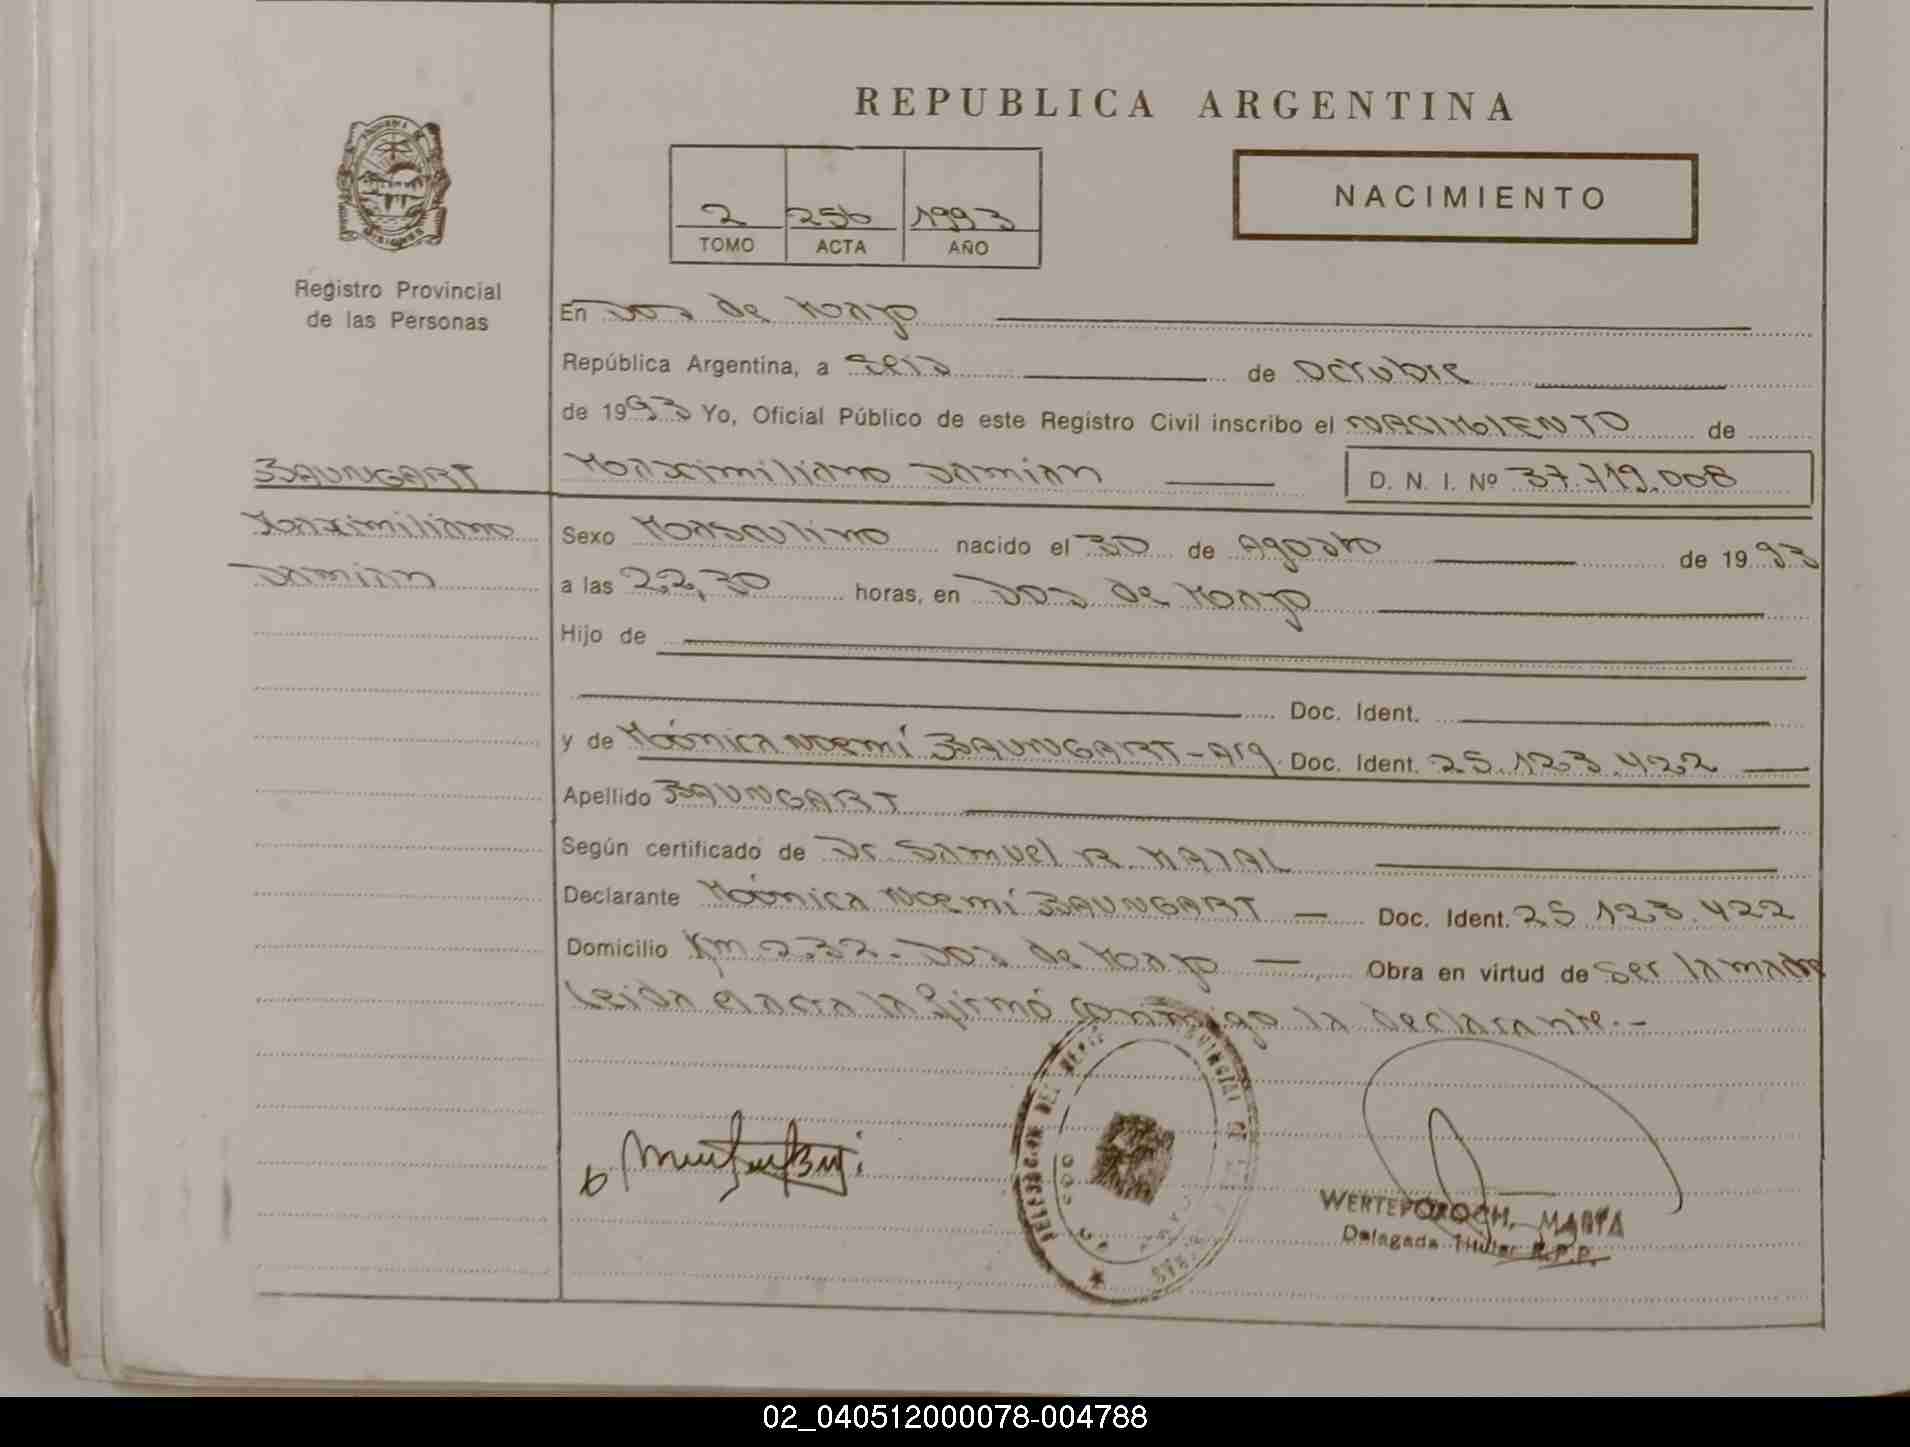 REPUBLICA ARGENTINA
NACIMIENTO
2 256 1993
TOMO ACTA AÑO
Registro Provincial
de las Personas
En Dos de Mayo
República Argentina, a Seis de Octubre
de 1993 Yo, Oficial Público de este Registro Civil inscribo el NACIMIENTO de
BAUNGART
Maximiliano Damian D. N. I. Nº 37.719.008
Maximiliano
Damian
Sexo Masculino nacido el 30 de Agosto de 1993
a las 22,30 horas, en Dos de Mayo
Hijo de
Doc. Ident.
y de Mónica Noemí BAUNGART-Arg. Doc. Ident. 25.123.422
Apellido BAUNGART
Según certificado de Dr. Samuel R.
Declarante Mónica Noemí BAUNGART — Doc. Ident. 25.123.422
Domicilio Km 232 - Dos de Mayo — Obra en virtud de Ser la madre
Leida el acta la firmó conmigo la declarante.-
WERTEPOROCH, MARTA
Delegada Titular R.P.P.
02_040512000078-004788